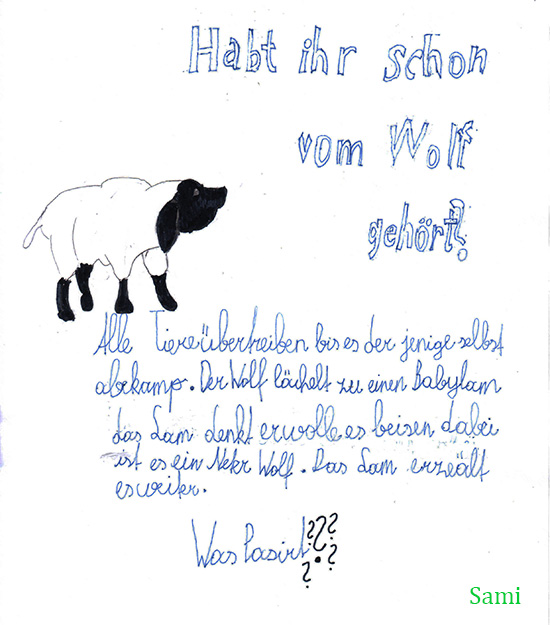 Habt ihr schon
vom Wolf
gehört?
Alle Tiere übertreiben bis es der jenige selbst
abekamp. Der Wolf lächelt zu einen Babylam
das Lam denkt er wolle es beisen dabei
ist es ein Nekr Wolf. Das Lam erzeält
es weiter.
Was Pasirt?????
Sami